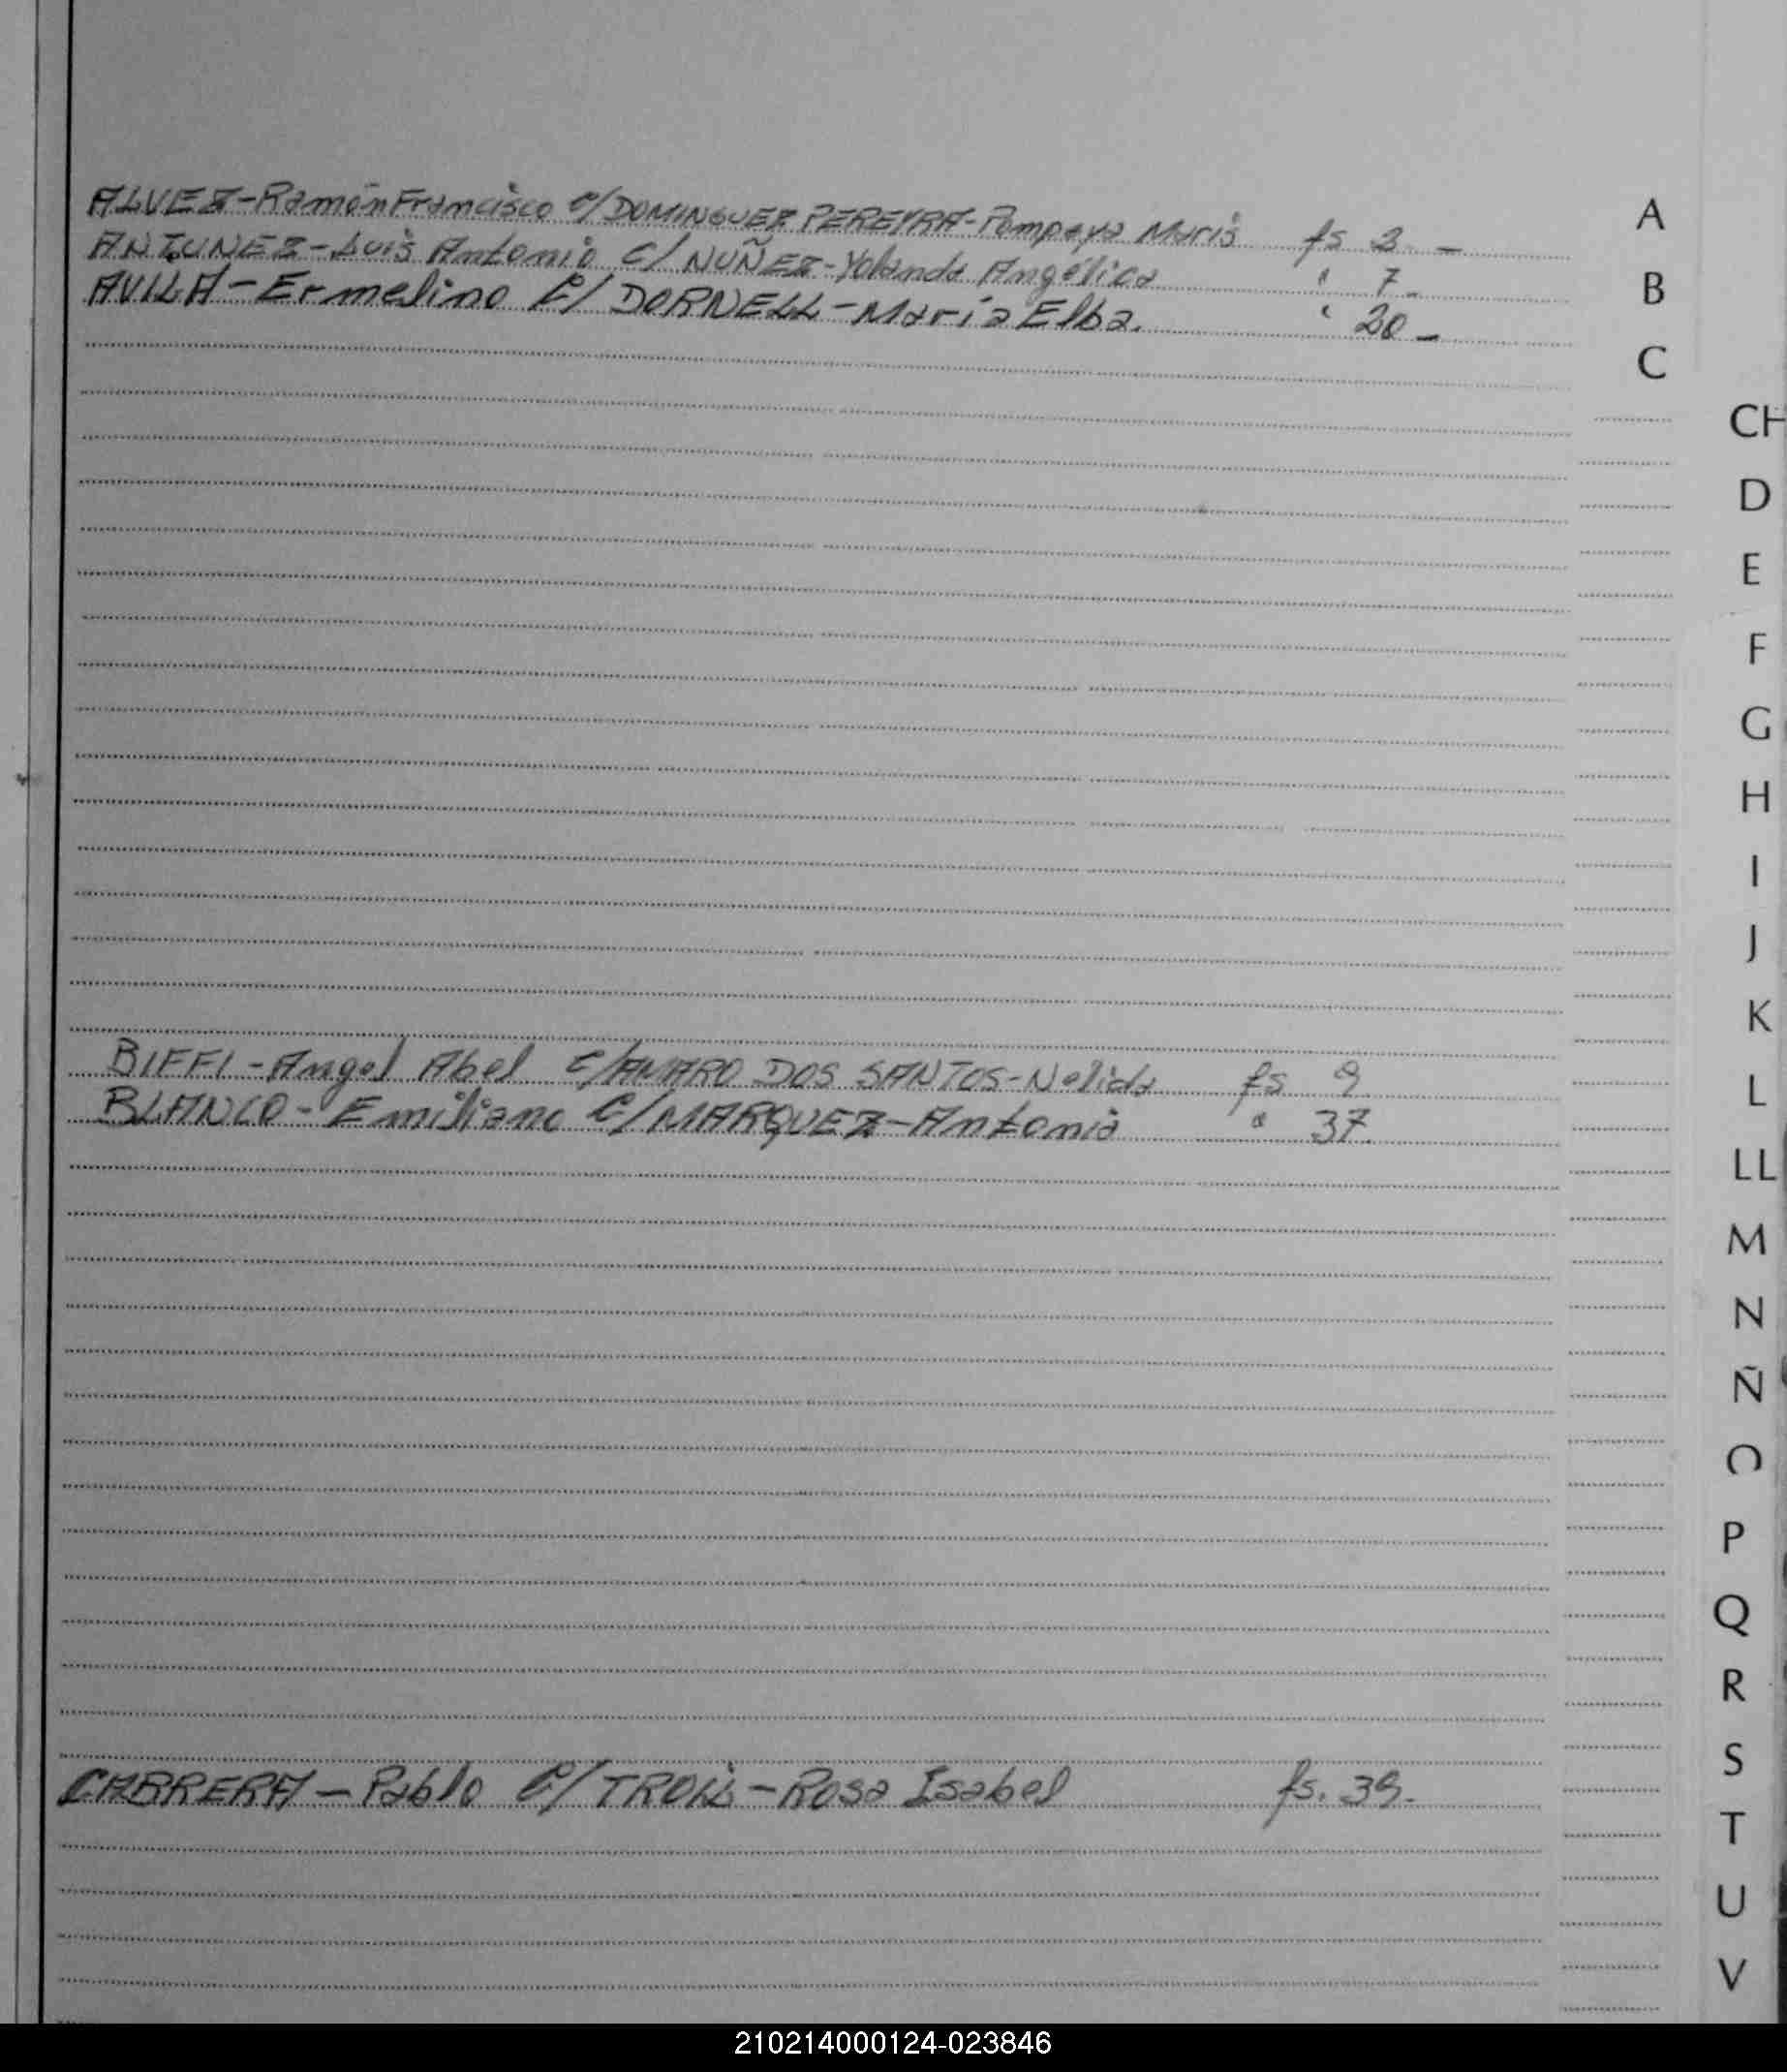 ALVEZ-Ramón Francisco c/DOMINGUEZ PEREYRA-Pompeya Maris fs 3 -
ANTUNEZ-Luis Antonio c/ NUÑEZ-Yolanda Angélica " 7-
AVILA-Ermelino c/ DORNELL-María Elba. " 20-
BIFFI-Angel Abel c/AMARO DOS SANTOS-Nelida fs 9
BLANCO-Emiliano c/MARQUEZ-Antonia " 37.
CABRERA-Pablo c/ -Rosa Isabel fs. 39.
A
B
C
CH
D
E
F
G
H
I
J
K
L
LL
M
N
Ñ
O
P
Q
R
S
T
U
V
210214000124-023846